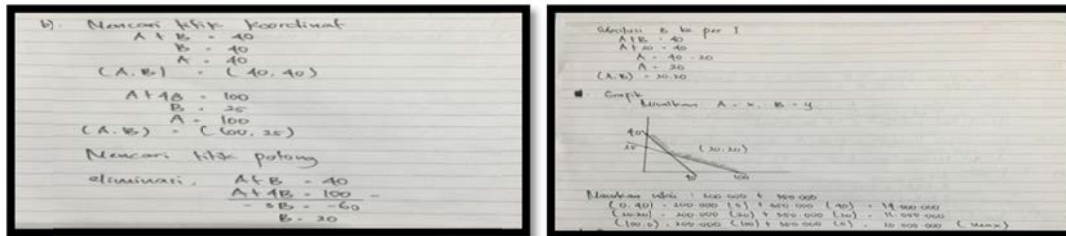 b). Mencari titik koordinat
A + B = 40
B = 40
A = 40
(A.B) = (40, 40)
A + 4B = 100
B = 25
A = 100
(A.B) = (100, 25)
Mencari titik potong
eliminasi. A + B = 40
A + 4B = 100 -
- 3B = -60
B = 20
Substitusi B ke per I
A + B = 40
A + 20 = 40
A = 40 - 20
A = 20
(A.B) = 20.20
Grafik
Misalkan A = x, B = y
40
25
(20.20)
40
100
(0.40) = 200.000 (0) + 350.000 (40) = 14.000.000
(20.20) = 200.000 (20) + 350.000 (20) = 11.000.000
(100.0) = 200.000 (100) + 350.000 (0) = 20.000.000 (max)